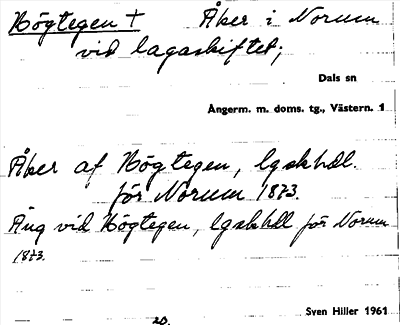 Högtegen † Åker i Norum
vid lagaskiftet;
Dals sn
Ångerm. m. doms. tg., Västern. 1
Åker af Högtegen, lgskhdl.
för Norum 1873.
Äng vid Högtegen, lgskhdl för Norum
1873.
Sven Hiller 1961
20.